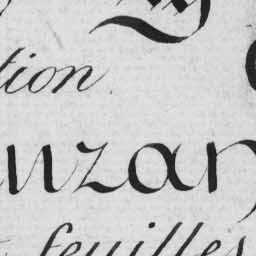 tion
uzan
feuilles